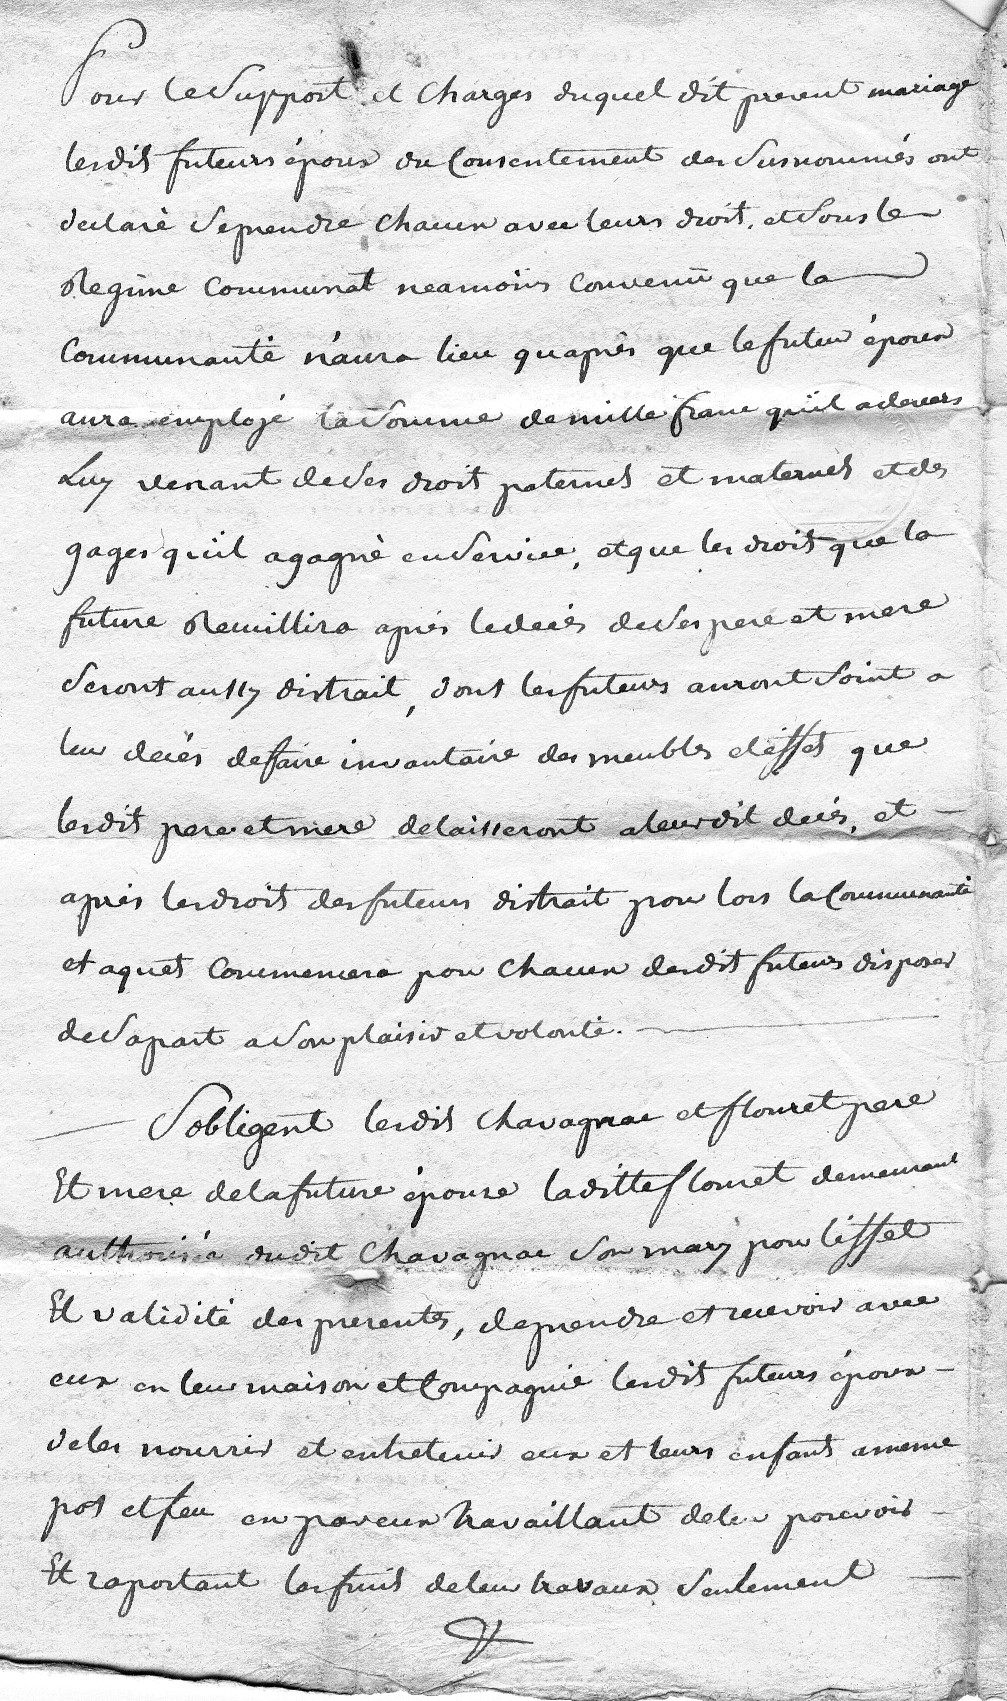 Pour le Support et Charges duquel dit present mariage
lesdits futeurs époux du Consentement des Susnommés ont
declaré Seprendre Chacun avec leurs droit, et Sous le
Regime Communal neamoins Convenu que la
Communauté n'aura lieu quaprès que le futeur époux
aura employé la Somme de mille franc quïl a devers
Luy venant de Ses droit paternels et maternels et des
gages quïl a gagné en Service, et que les droits que la
future Reuillira après le decés de Ses pere et mere
Seront aussy distrait, dont les futeurs auront Soint a
leur decés de faire invantaire des meubles et éffet que
lesdit pere et mere delaisseront a leurdit decés, et
après les droits des futeurs distrait pour lors la Communauté
et aquet Commencera pour Chacun desdit futeurs disposer
de Sa part a Son plaisir et volonté.
Sobligent lesdits Chavagnac et flouret pere
Et mere de la future épouse laditte flouret demeurant
authorisée dudit Chavagnac Son mary pour l'éffet
Et validité des presentes, de prendre et recevoir avec
eux en leur maison et Compagnie lesdit futeurs époux
de les nourrir et entretenir eux et leurs enfants a meme
pot et feu en par eux travaillant de leur pouvoir
Et raportant les fruits de leur travaux Seulement